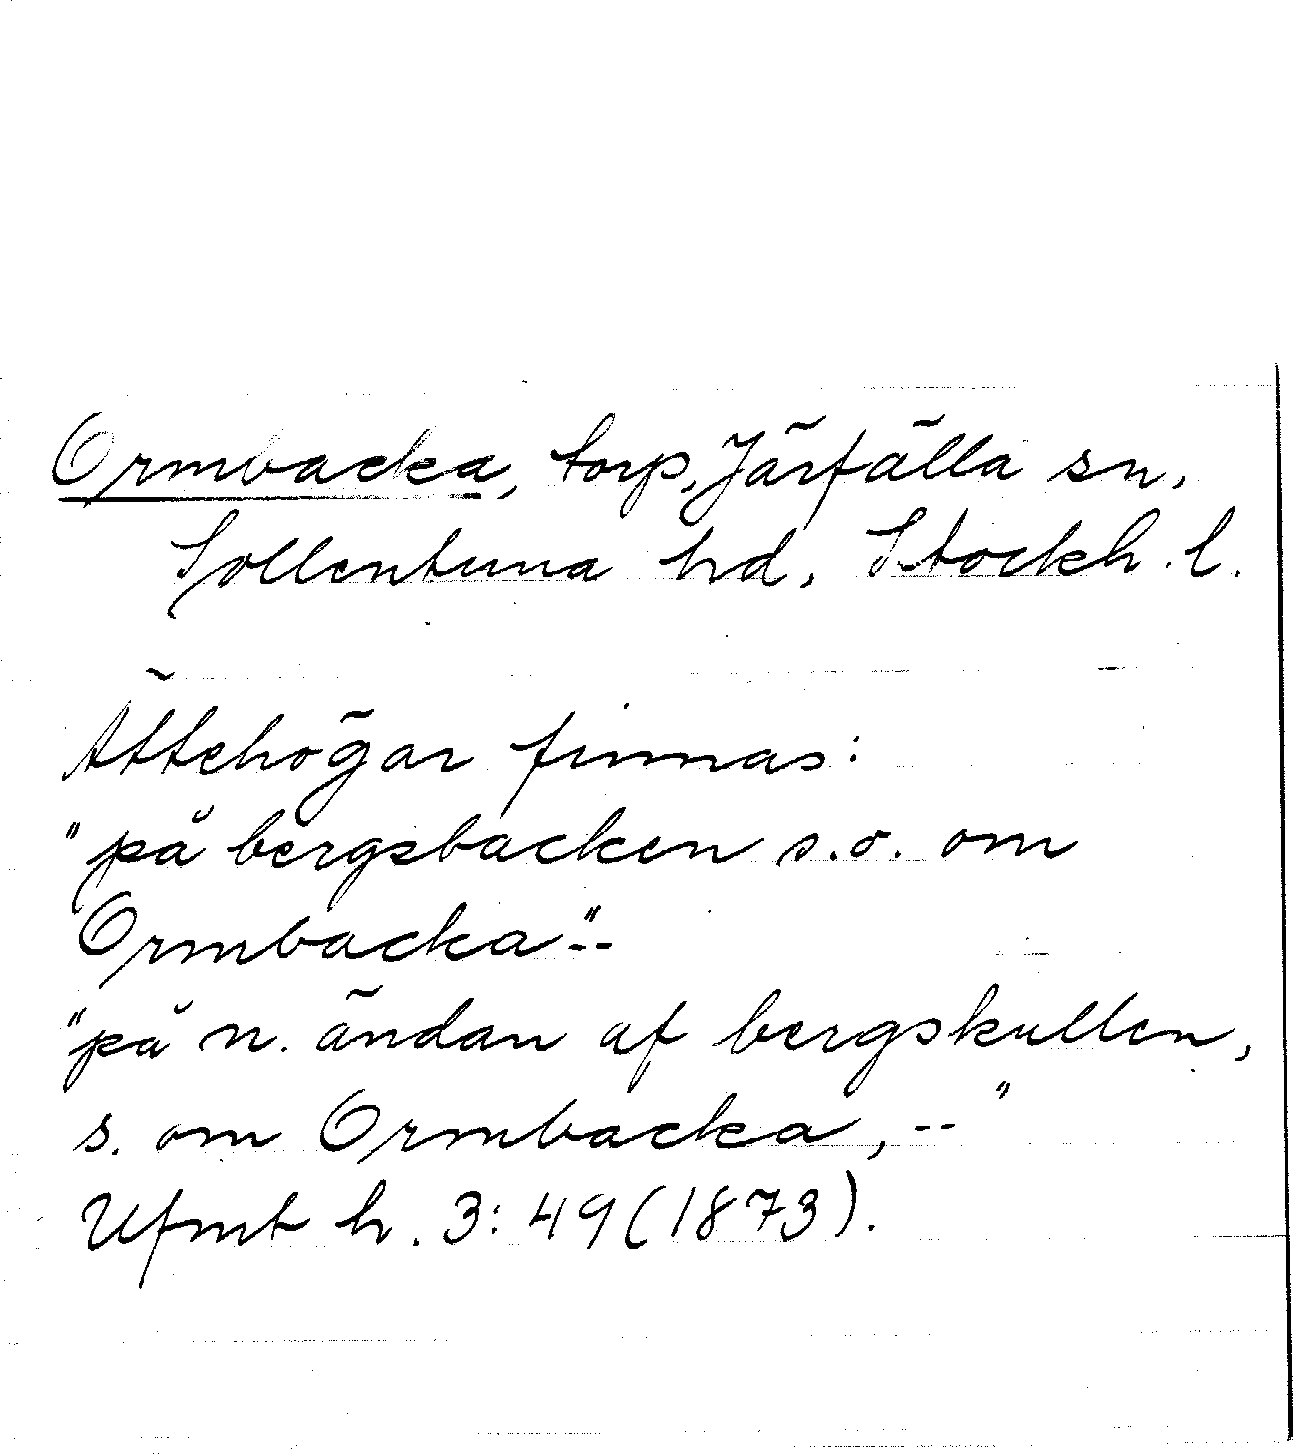 Ormbacka, torp, Järfälla sn,
Sollentuna hd, Stockh. l.
Ättehögar finnas:
"på bergsbacken s.o. om
Ormbacka"--
"på n. ändan af bergskullen,
s. om Ormbacka, --"
Ufmt h. 3: 49 (1873).